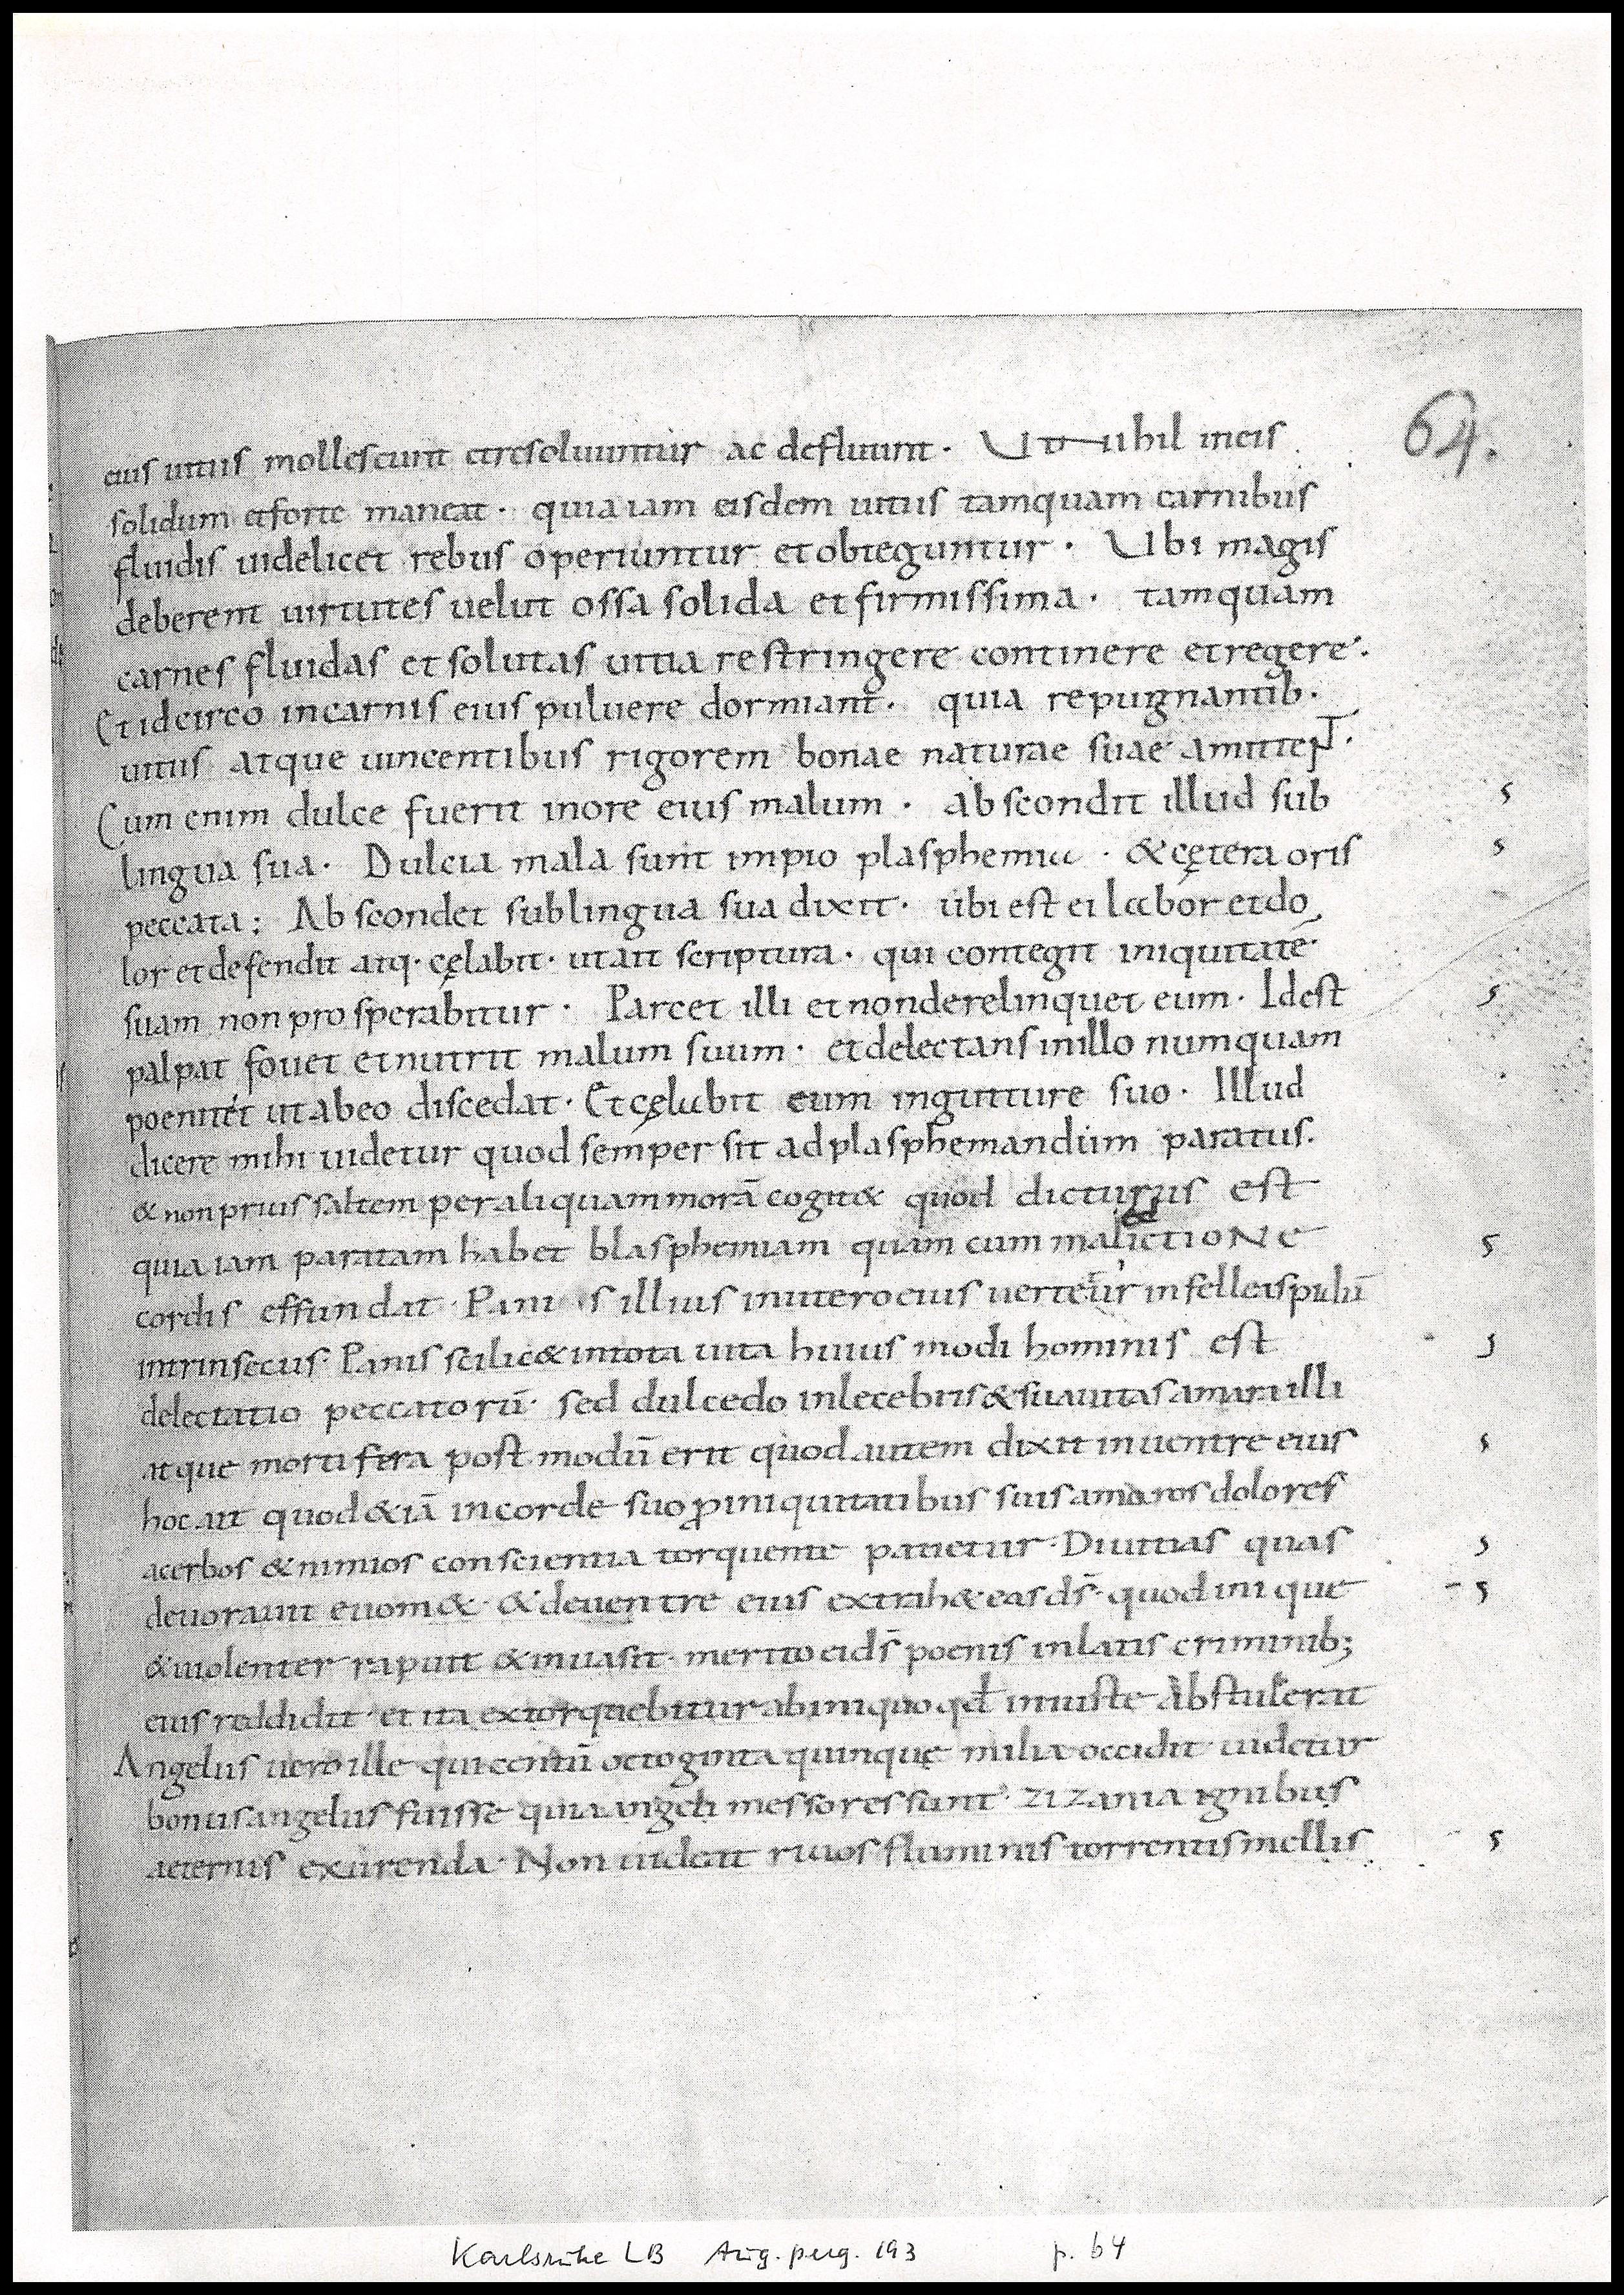 64.
eius uitiis mollescunt etresoluuntur ac defluunt · Ut nihil ineis
solidum etforte maneat · quia iam eisdem uitiis tamquam carnibus
fluidis uidelicet rebus operiuntur et obteguntur · Ubi magis
deberent uirtutes uelut ossa solida et firmissima · tamquam
carnes fluidas et solutas uitia restringere continere et regere ·
Et idcirco incarnis eius puluere dormiant · quia repugnantib·
uitiis atque uincentibus rigorem bonae naturae suae amitteNT ·
Cum enim dulce fuerit inore eius malum · abscondit illud sub
lingua sua · Dulcia mala sunt impio plasphemia · & cętera oris
peccata ; Abscondet sublingua sua dixit · ubi est ei labor et do
lor et defendit atq· cęlabit · ut ait scriptura · qui contegit iniquitatē ·
suam non prosperabitur · Parcet illi et nonderelinquet eum · Idest
palpat fouet et nutrit malum suum · et delectans inillo numquam
poenitet ut abeo discedat · Et cęlabit eum ingutture suo · Illud
dicere mihi uidetur quod semper sit ad plasphemandum paratus ·
& non prius saltem per aliquam morā cogit& quod dicturus est
quia iam paratam habet blasphemiam quam cum malictione
cordis effundat · Panis illius inutero eius uertetur in fell& aspidū
intrinsecus · Panis scilic& intota uita huius modi hominis est
delectatio peccatorū · sed dulcedo inlecebris & suauitas amara illi
atque mortifera post modū erit quod autem dixit in uentre eius
hoc ait quod &iā in corde suo p̱ iniquitatibus suis amaros dolores
acerbos & nimios conscientia torquente patietur · Diuitias quas
deuorauit euom& · & deuentre eius extrah& eas d̄s · quod inique
& uiolenter rapuit & inuasit · merito ei d̄s poenis inlatis criminib;
eius reddidit · et ita extorquebitur abiniquo qđ iniuste abstulerat
Angelus uero ille qui centū octoginta quinquę milia occidit uidetur
bonus angelus fuisse quia angeli messores sunt · zizania ignibus
aeternis exurenda · Non uideat riuos fluminis torrentis mellis
Karlsruhe LB Aug. perg. 193 p. 64